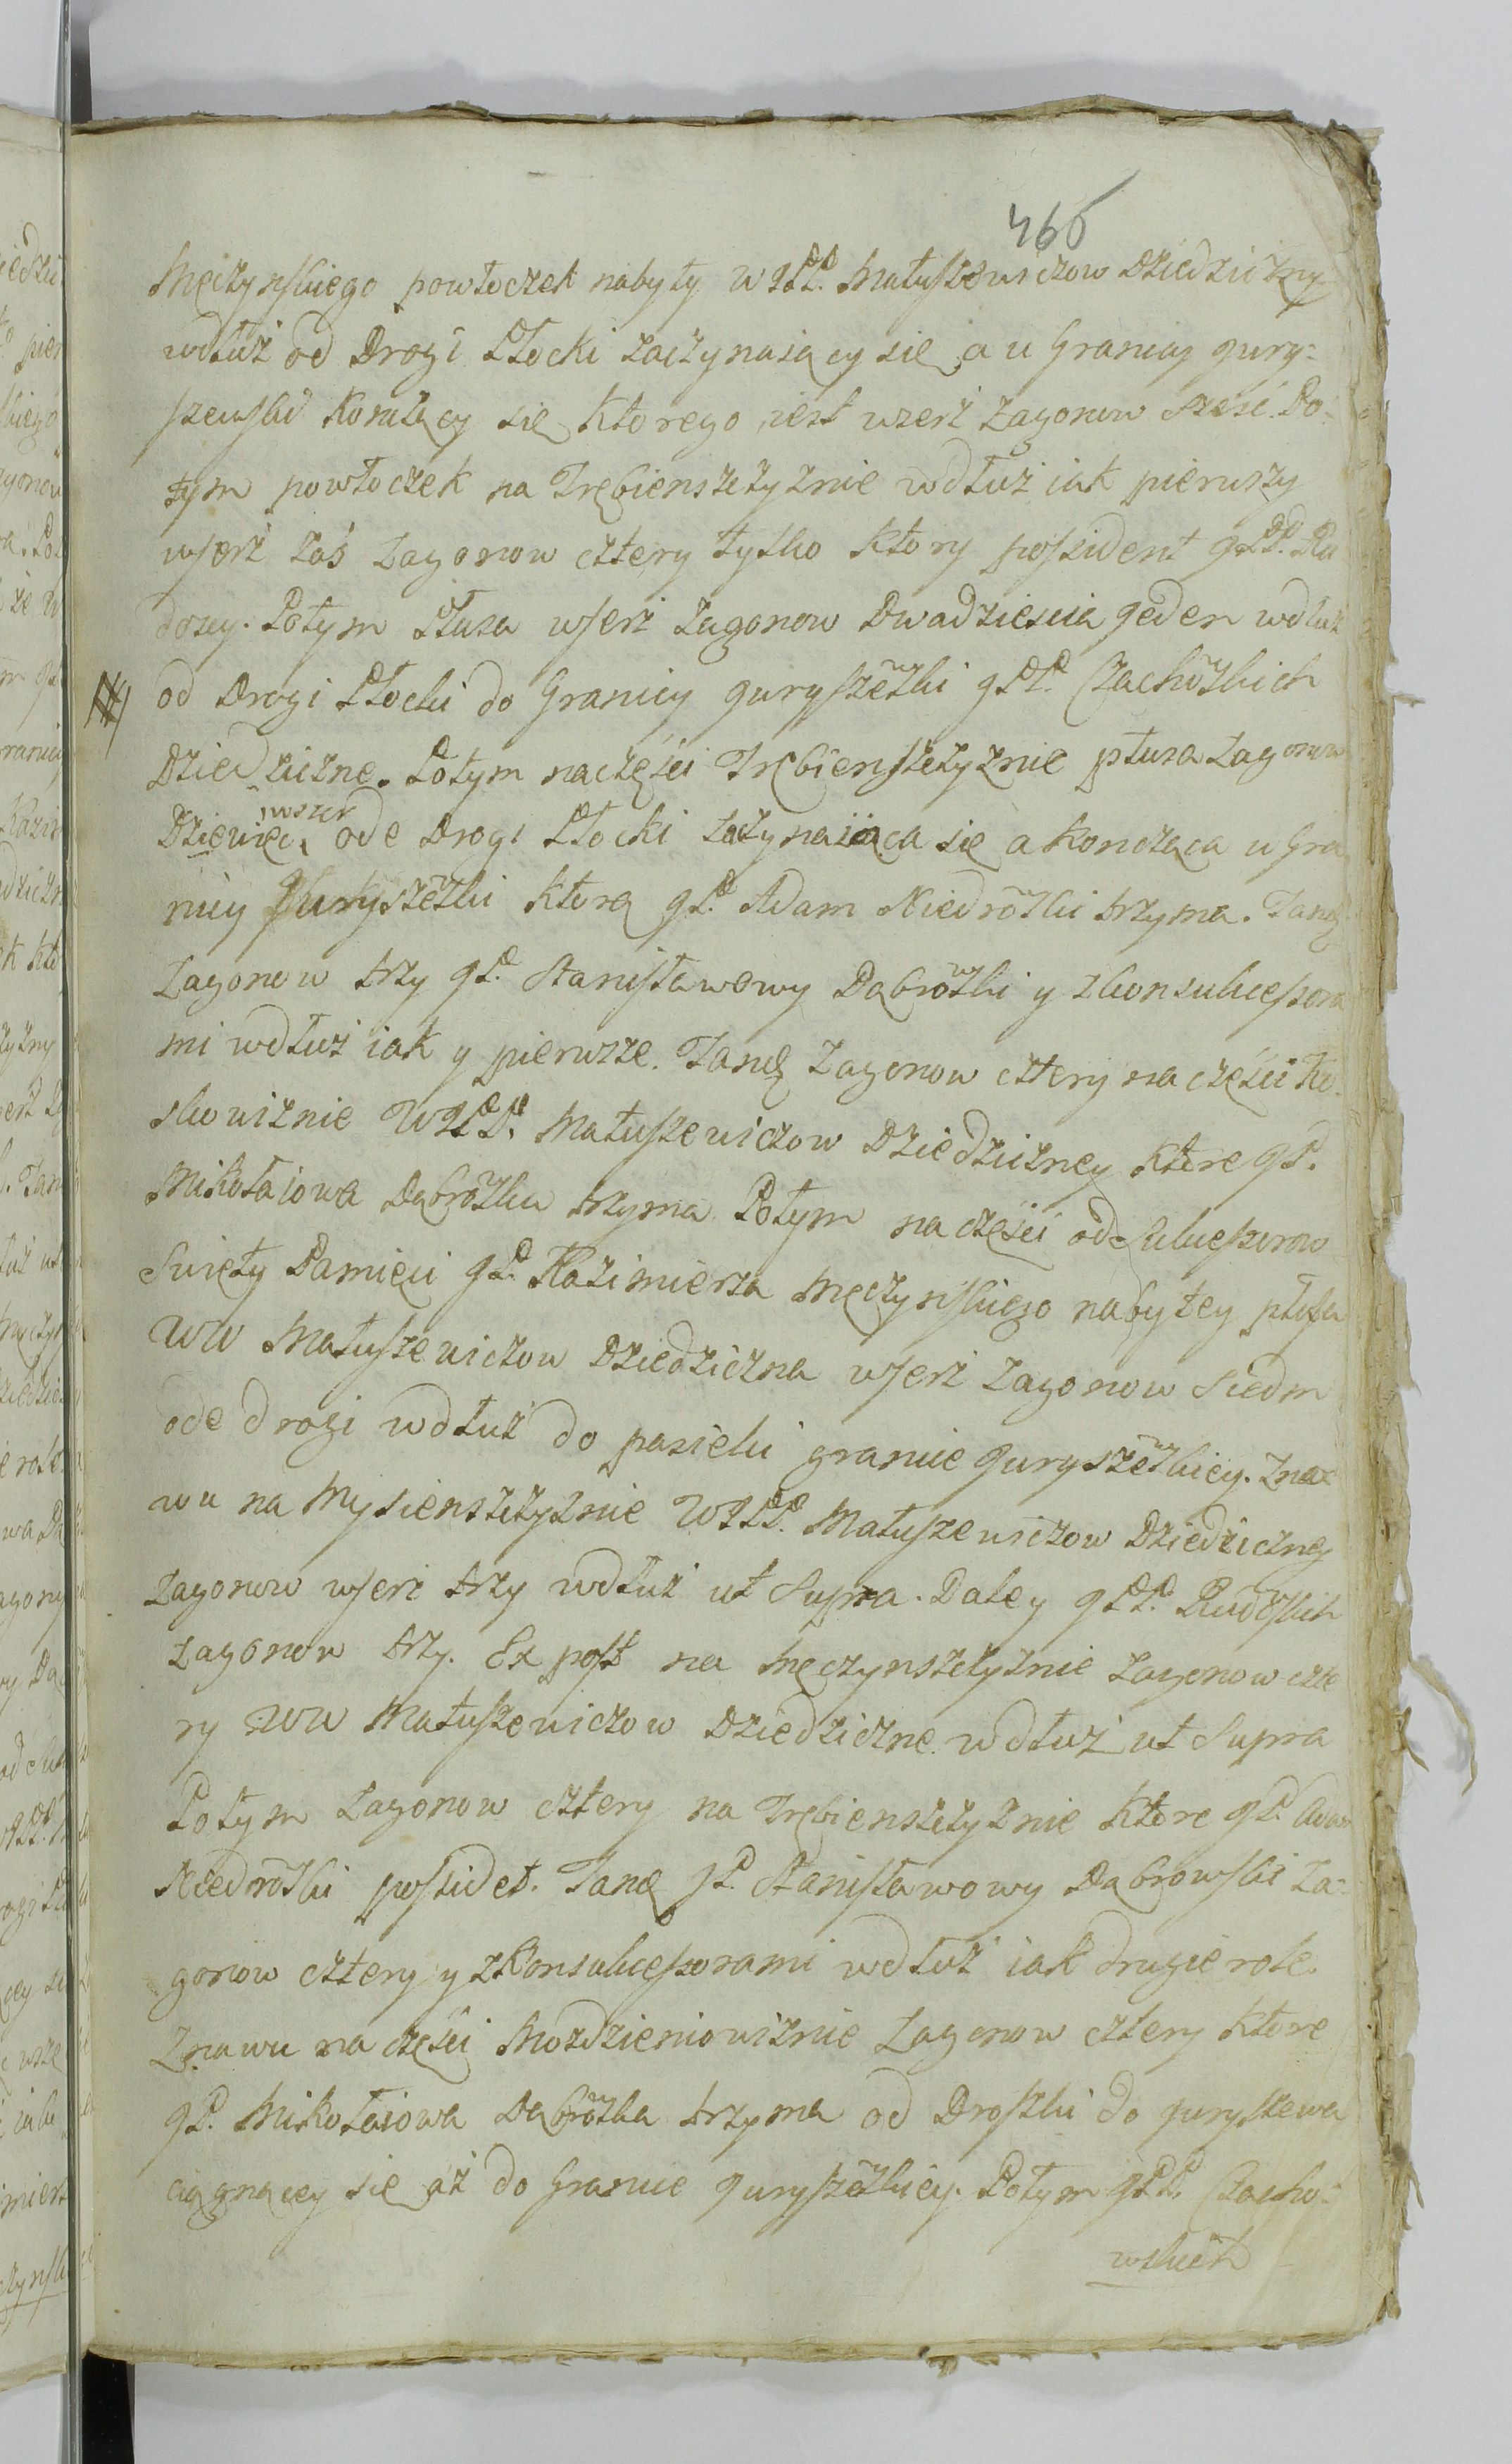 466
Męczynskiego powłoczek nabyty WJPP. Matuszewiczow Dziedziczny
wdłuż od Drogi Płocki zaczynaiący się a u Granicy gury-
szewski konczący się ktorego iest wszerż Zagonow szesc. Po-
tym powłoczek na Trębienszczyznie wdłuż iak pierwszy
wszerż zaś Zagonow cztery tylko ktory possident JPP. Ru
doscy. Potym Płusa wszerż Zagonow Dwadziescia Jeden wdłuż
od Drogi Płocki do Granicy guryszewski JPP. Czachowskich
Dziedziczne. Potym na części Trębienszczyznie płusa Zagonow
Dziewięc wszerz ode Drogi Płocki zaczynaiąca się a konczaca u Gra
nicy Guryszewski ktorą JP. Adam Niedrowski trzyma. Tandę
Zagonow trzy JP. Stanisławowy Dąbrowski y zkonsukcessora
mi wdłuż iak y pierwsze. Tandę Zagonow cztery na części Ko
skowiznie WJPP. Matuszewiczow Dziedziczney ktore JP.
Mikołaiowa Dąbrowska trzyma. Potym na części od Sukcessorow
Swięty Pamięci JP. Kazimierza Męczynskiego nabytey płosa
WW Matuszewiczow Dziedziczna wszerż Zagonow Siedm
ode drogi wdłuż do pasieki granice guryszewskiey. Zna-
wu na Mysienszczyznie WJPP. Matuszewiczow Dziedziczney
Zagonow wszerz trzy wdłuż ut Supra. Daley JPP. Rudoskich
Zagonow trzy. Ex post na Męczynszczyznie Zagonow czte
ry WW Matuszewiczow Dziedziczne wdłuż ut Supra
Potym Zagonow cztery na Trębienszczyznie ktore JP. Adam
Niedrowski possidet. Tandę JP. Stanisławowy Dąbrowski Za-
gonow cztery y zkonsukcessorami wdłuż iak drugie role.
Znawu na części Mozdzieniowiznie Zagonow cztery ktore
JP. Mikołaiowa Dąbrowska trzyma od Droszki do guryszewa
ciągnący się aż do Granice guryszewskiey. Potym JPP. Czacho-
wskich